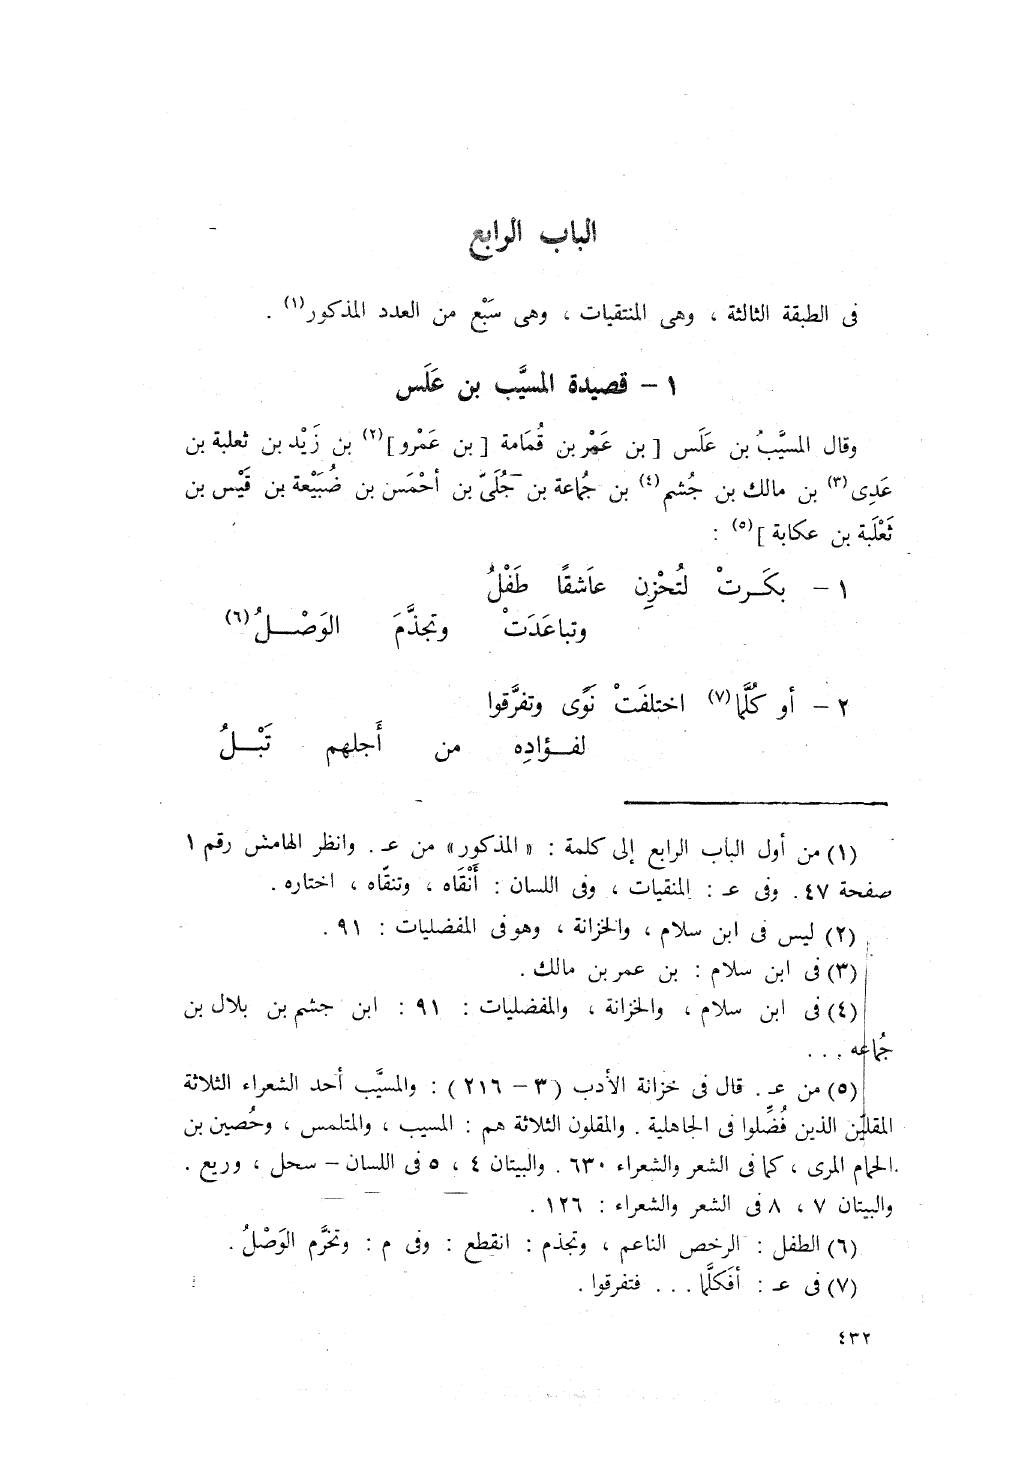 الباب الرابع
فى الطبقة الثالثة ، وهى المنتقيات ، وهى سَبْع من العدد المذكور(١) .
١ – قصيدة المسيَّب بن عَلَس
وقال المسيَّبُ بن عَلَس [ بن عَمْر بن قُمَامة [ بن عَمْرو ](٢) بن زَيْد بن ثعلبة بن
عَدِى(٣) بن مالك بن جُشم(٤) بن جُماعة بن جُلَىّ بن أحْمَس بن ضُبَيْعة بن قَيْس بن
ثَعْلَبة بن عكابة ](٥) :
١ – بكَـرتْ لتُحْزِن عاَشقًا طَفْلُ
وتباعَدَتْ وتجذَّمَ الوَصْـلُ(٦)
٢ – أو كُلَّما(٧) اختلفَتْ نَوًى وتفرَّقوا
لفـؤادِه من أَجلهم تَبْـلُ
(١) من أول الباب الرابع إلى كلمة : « المذكور » من عـ . وانظر الهامش رقم ١
صفحة ٤٧ . وفى عـ : المنقيات ، وفى اللسان : أَنْقَاه ، وتنقّاه ، اختاره .
(٢) ليس فى ابن سلام ، والخزانة ، وهو فى المفضليات : ٩١ .
(٣) فى ابن سلام : بن عمر بن مالك .
(٤) فى ابن سلام ، والخزانة ، والمفضليات : ٩١ : ابن جشم بن بلال بن
جُماعه . . .
(٥) من عـ . قال فى خزانة الأدب ( ٣ – ٢١٦ ) : والمسيَّب أحد الشعراء الثلاثة
المقلين الذين فُضِّلوا فى الجاهلية . والمقلون الثلاثة هم : المسيب ، والمتلمس ، وحُصين بن
الحمام المرى ، كما فى الشعر والشعراء ٦٣٠ . والبيتان ٤ ، ٥ فى اللسان – سحل ، وريع .
والبيتان ٧ ، ٨ فى الشعر والشعراء : ١٢٦ .
(٦) الطفل : الرخص الناعم ، وتجذم : انقطع : وفى م : وتخرَّم الوَصْلُ .
(٧) فى عـ : أفَكلَّما . . . فتفرقوا .
٤٣٢